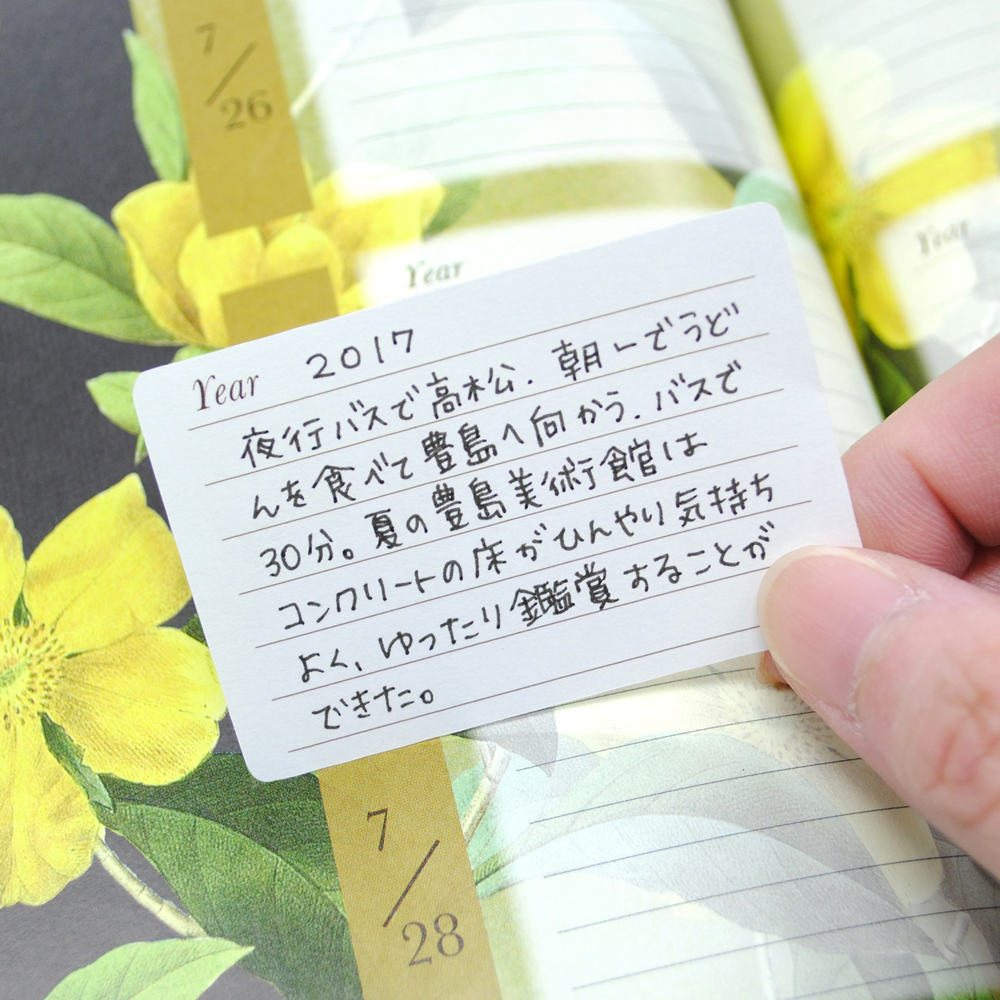 7/26
Year
Year
Year 2017
夜行バスで高松. 朝一でうど
んを食べて豊島へ向かう. バスで
30分。夏の豊島美術館は
コンクリートの床がひんやり気持ち
よく、ゆったり鑑賞することが
できた。
7/28